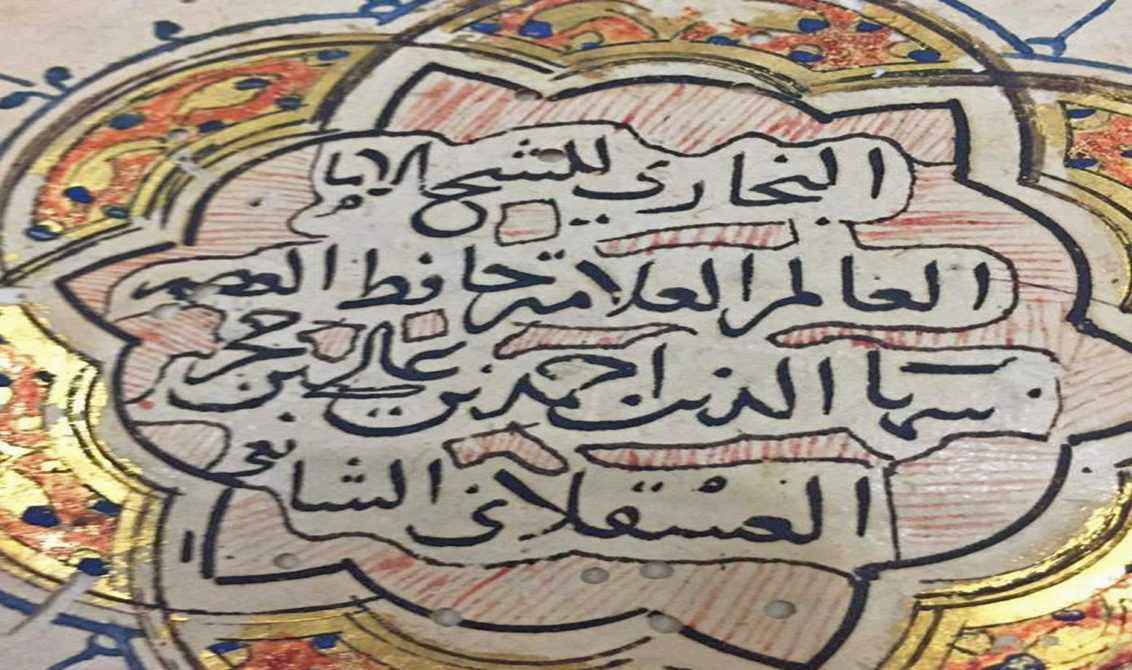 البخارى للشيخ الاما
العالم العلامة حافظ العصر
شهاب الدين احمد بن على بن حجر
العسقلانى الشافعى